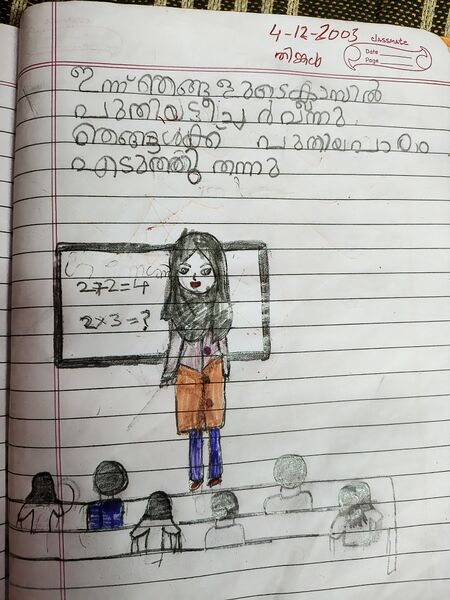 4-12-2003
തിങ്കൾ
classmate
Date
Page
ഇന്ന് ഞങ്ങളുടെ ക്ലാസിൽ
പുതിയ ട്ടീച്ചർ വന്നു
ഞെങ്ങൾക്ക് പുതിയ പാഠം
എടുത്തു തന്നു
2×2=4
2×3=?